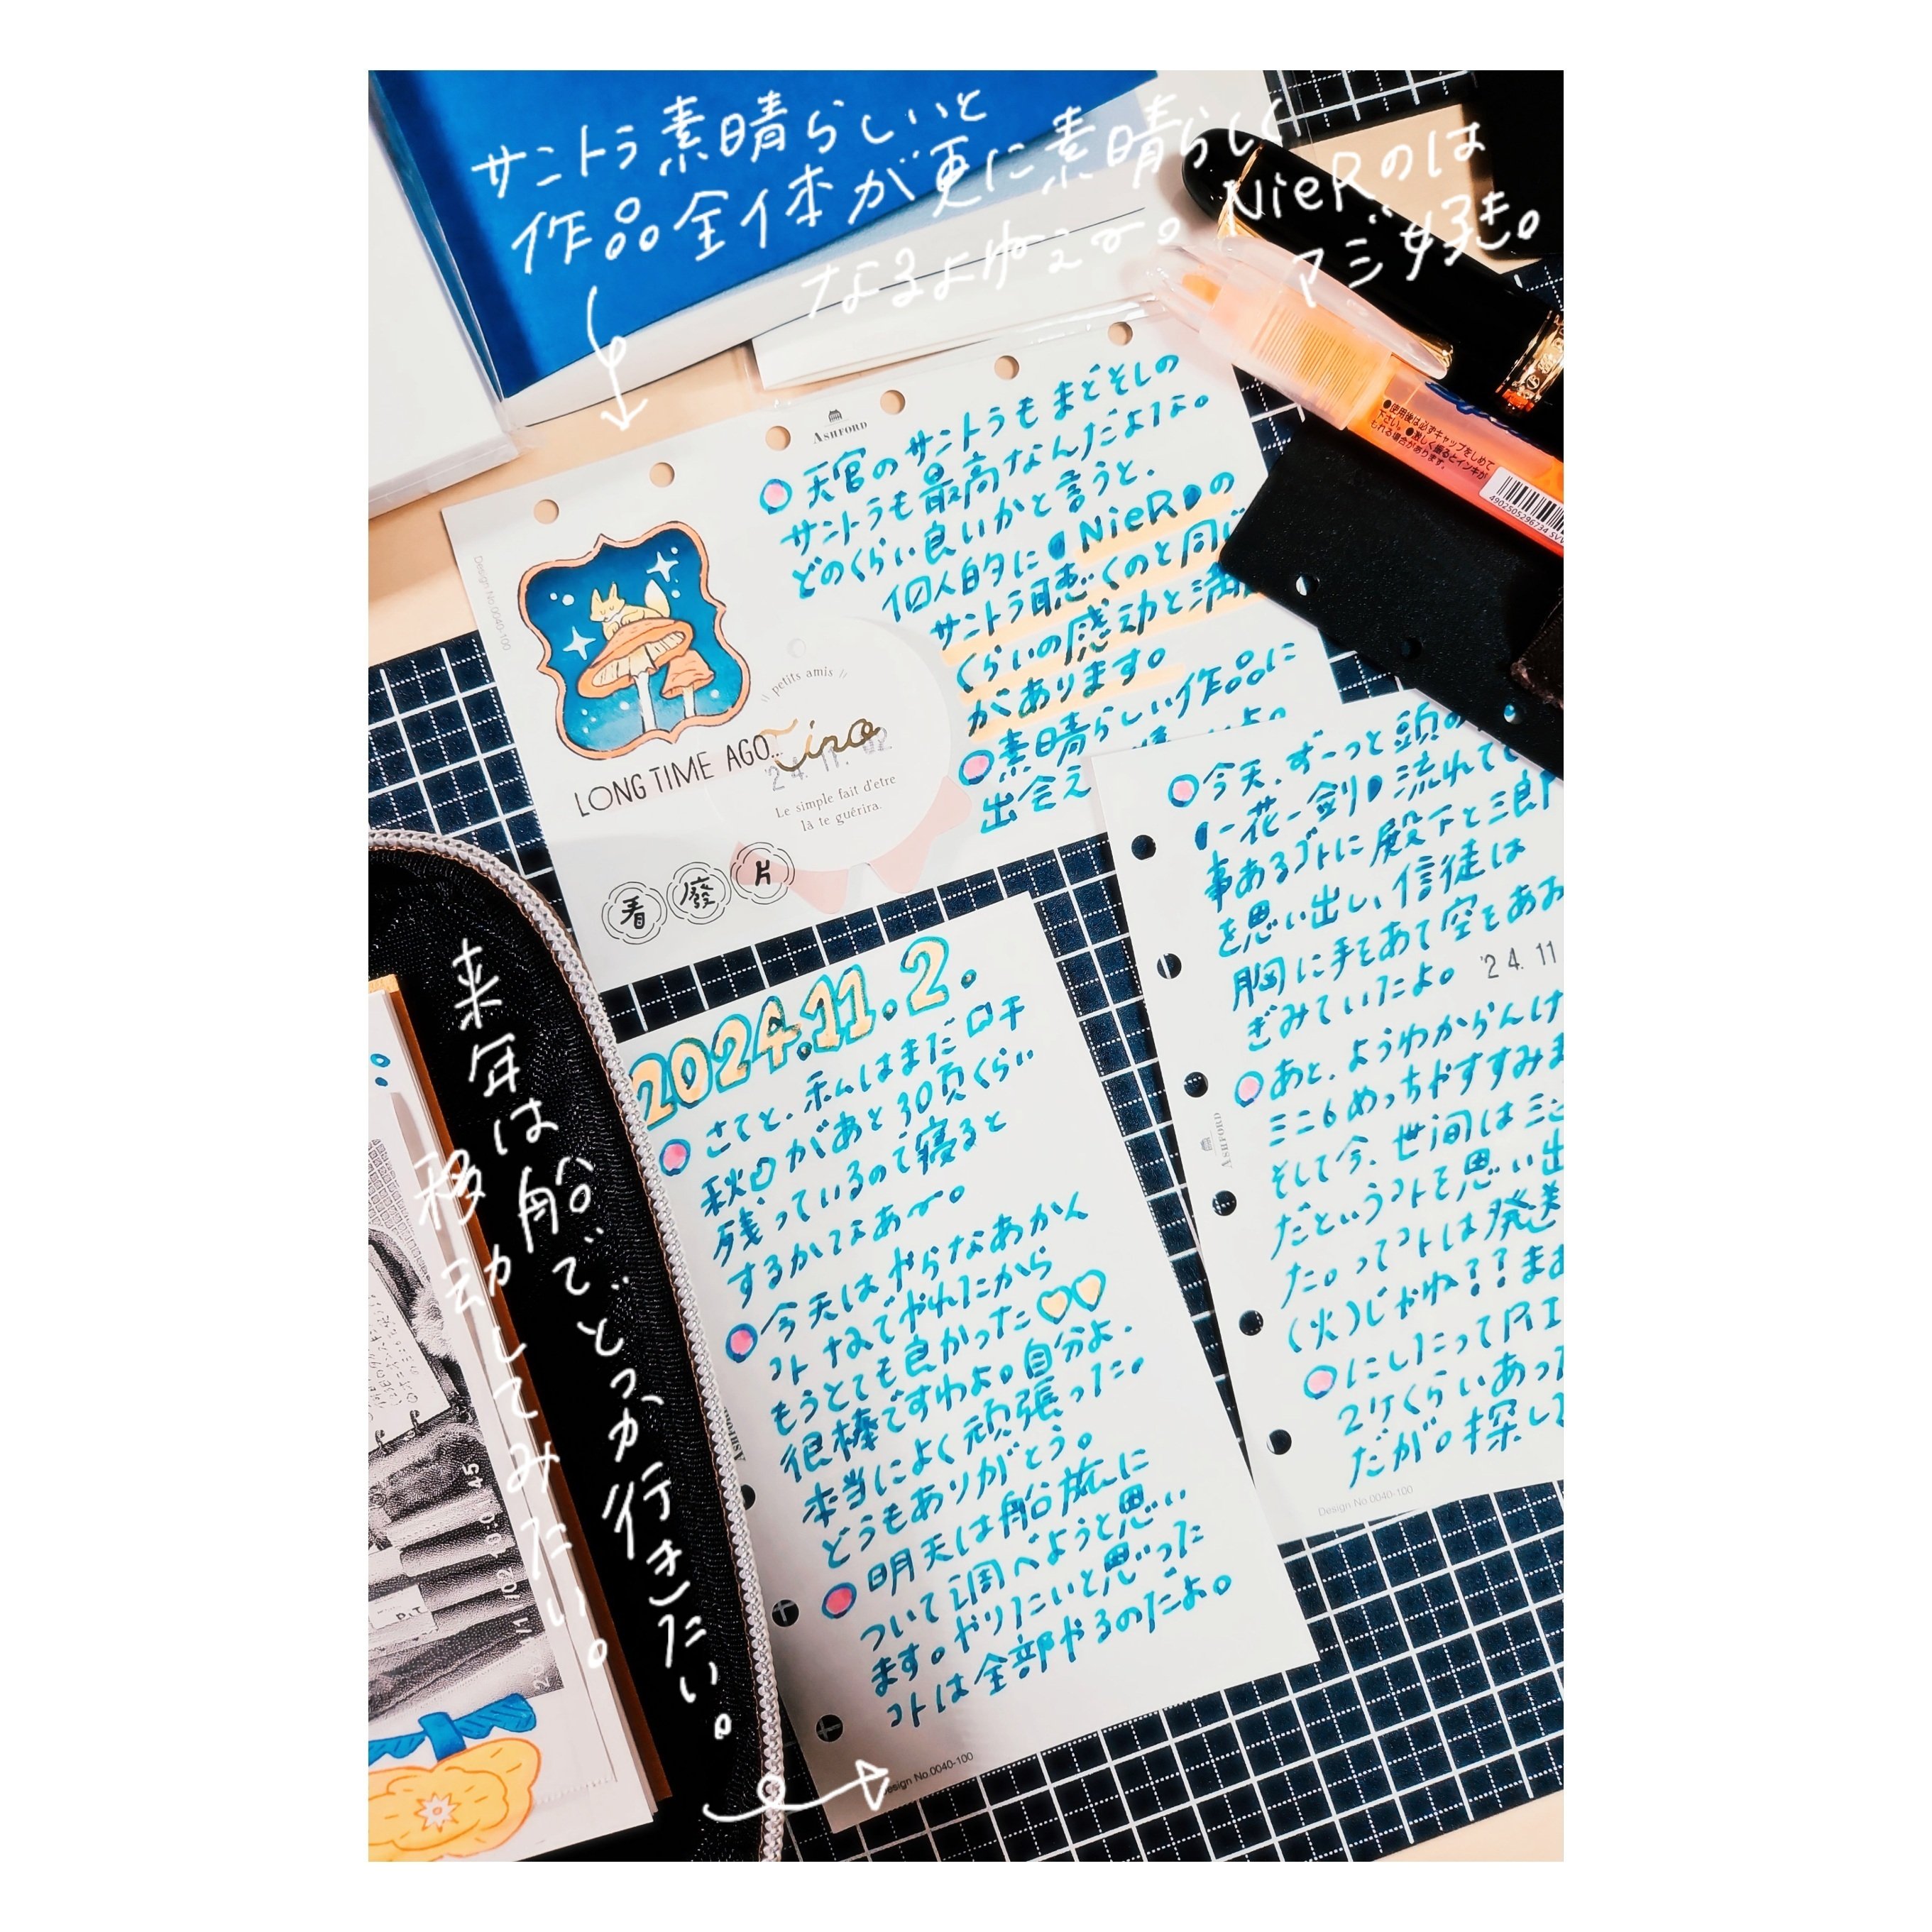 サントラ素晴らしいと
作品全体が更に素晴らしく
なるよねェ〜。NieRのは
マジ好き。
ASHFORD
天官のサントラもまどそしの
サントラも最高なんだよねよ。
どのくらい良いかと言うと、
個人的に NieR の
サントラ聴くのと同じ
くらいの感动と
があります。
素晴らしい作品に
出会え
Design No.0040-100
petits amis
Tino
'24.11.02
Le simple fait d'etre
là te guérira.
LONG TIME AGO...
看 廢 片
今天、ずーっと頭の
一花一剣 流れて
事あるゴトに殿下と三郎
を思い出し、信徒は
胸に手をあて空をあお
ぎみていたよ。
'24.11
あと、ようわからんけ
ミニ6めっちゃすすみま
そして今、世间は三
だというコトを思い出
た。ってコトは発送
(火)じゃね??まあ
にしたってRI
2ケくらいあった
だが。探して
ASHFORD
Design No.0040-100
2024.11.2.
さてと、私はまだロ干
秋日があと30頁くらい
残っているので寝ると
するかなあ〜。
今天はやらなあかん
コト でやれたから
もうとても良かった♡♡
很棒ですわよ。自分よ、
本当によく頑張った。
どうもありがとう。
明天は船旅に
ついて调べようと思い
ます。やりたいと思った
コトは全部やるのだよ。
Design No.0040-100
来年は船でどっか行きたい。
移动してみたい。
●使用後は必ずキャップをしめて
下さい。●激しく振るとインキが
もれる場合があります。
4902505296734